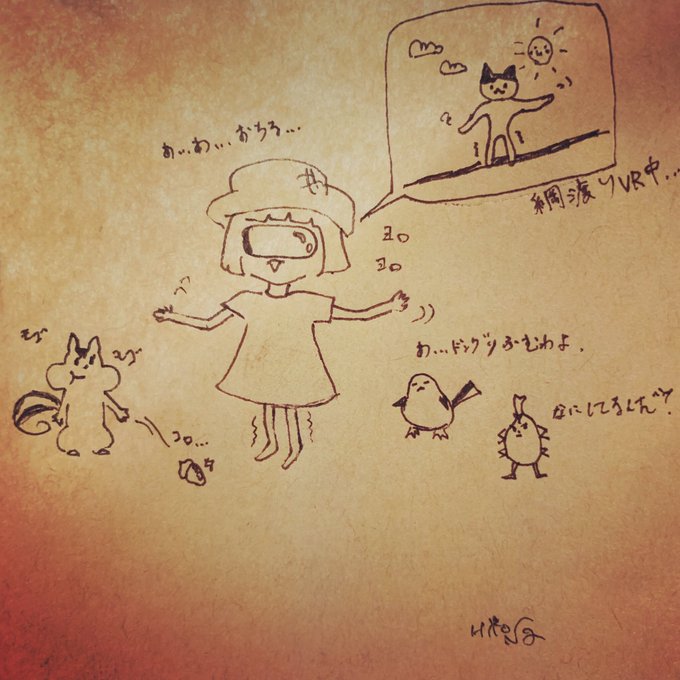 わ…わ…おちる…
綱渡りVR中…
ヨロ
ヨロ
わ…ドングリふむわよ。
なにしてるんだ?
コロ…